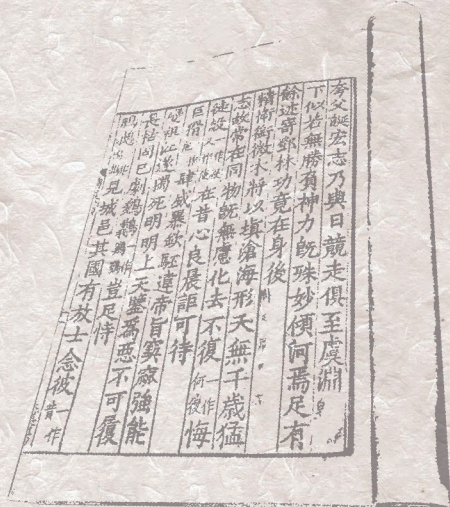 夸父誕宏志乃與日競走俱至虞淵
下似若無勝負神力既殊妙傾河焉足有
餘迹寄鄧林功竟在身後
精衛銜微木將以填滄海形天無千歲猛
志故常在同物既無慮化去不復一作何復悔
徒設在昔心良晨詎可待
巨猾肆威暴欽駓違帝旨窫窳強能
變祖江遂獨死明明上天鑒為惡不可履
長枯固已劇鵕鶚豈足恃
見城邑其國有放士念彼一作